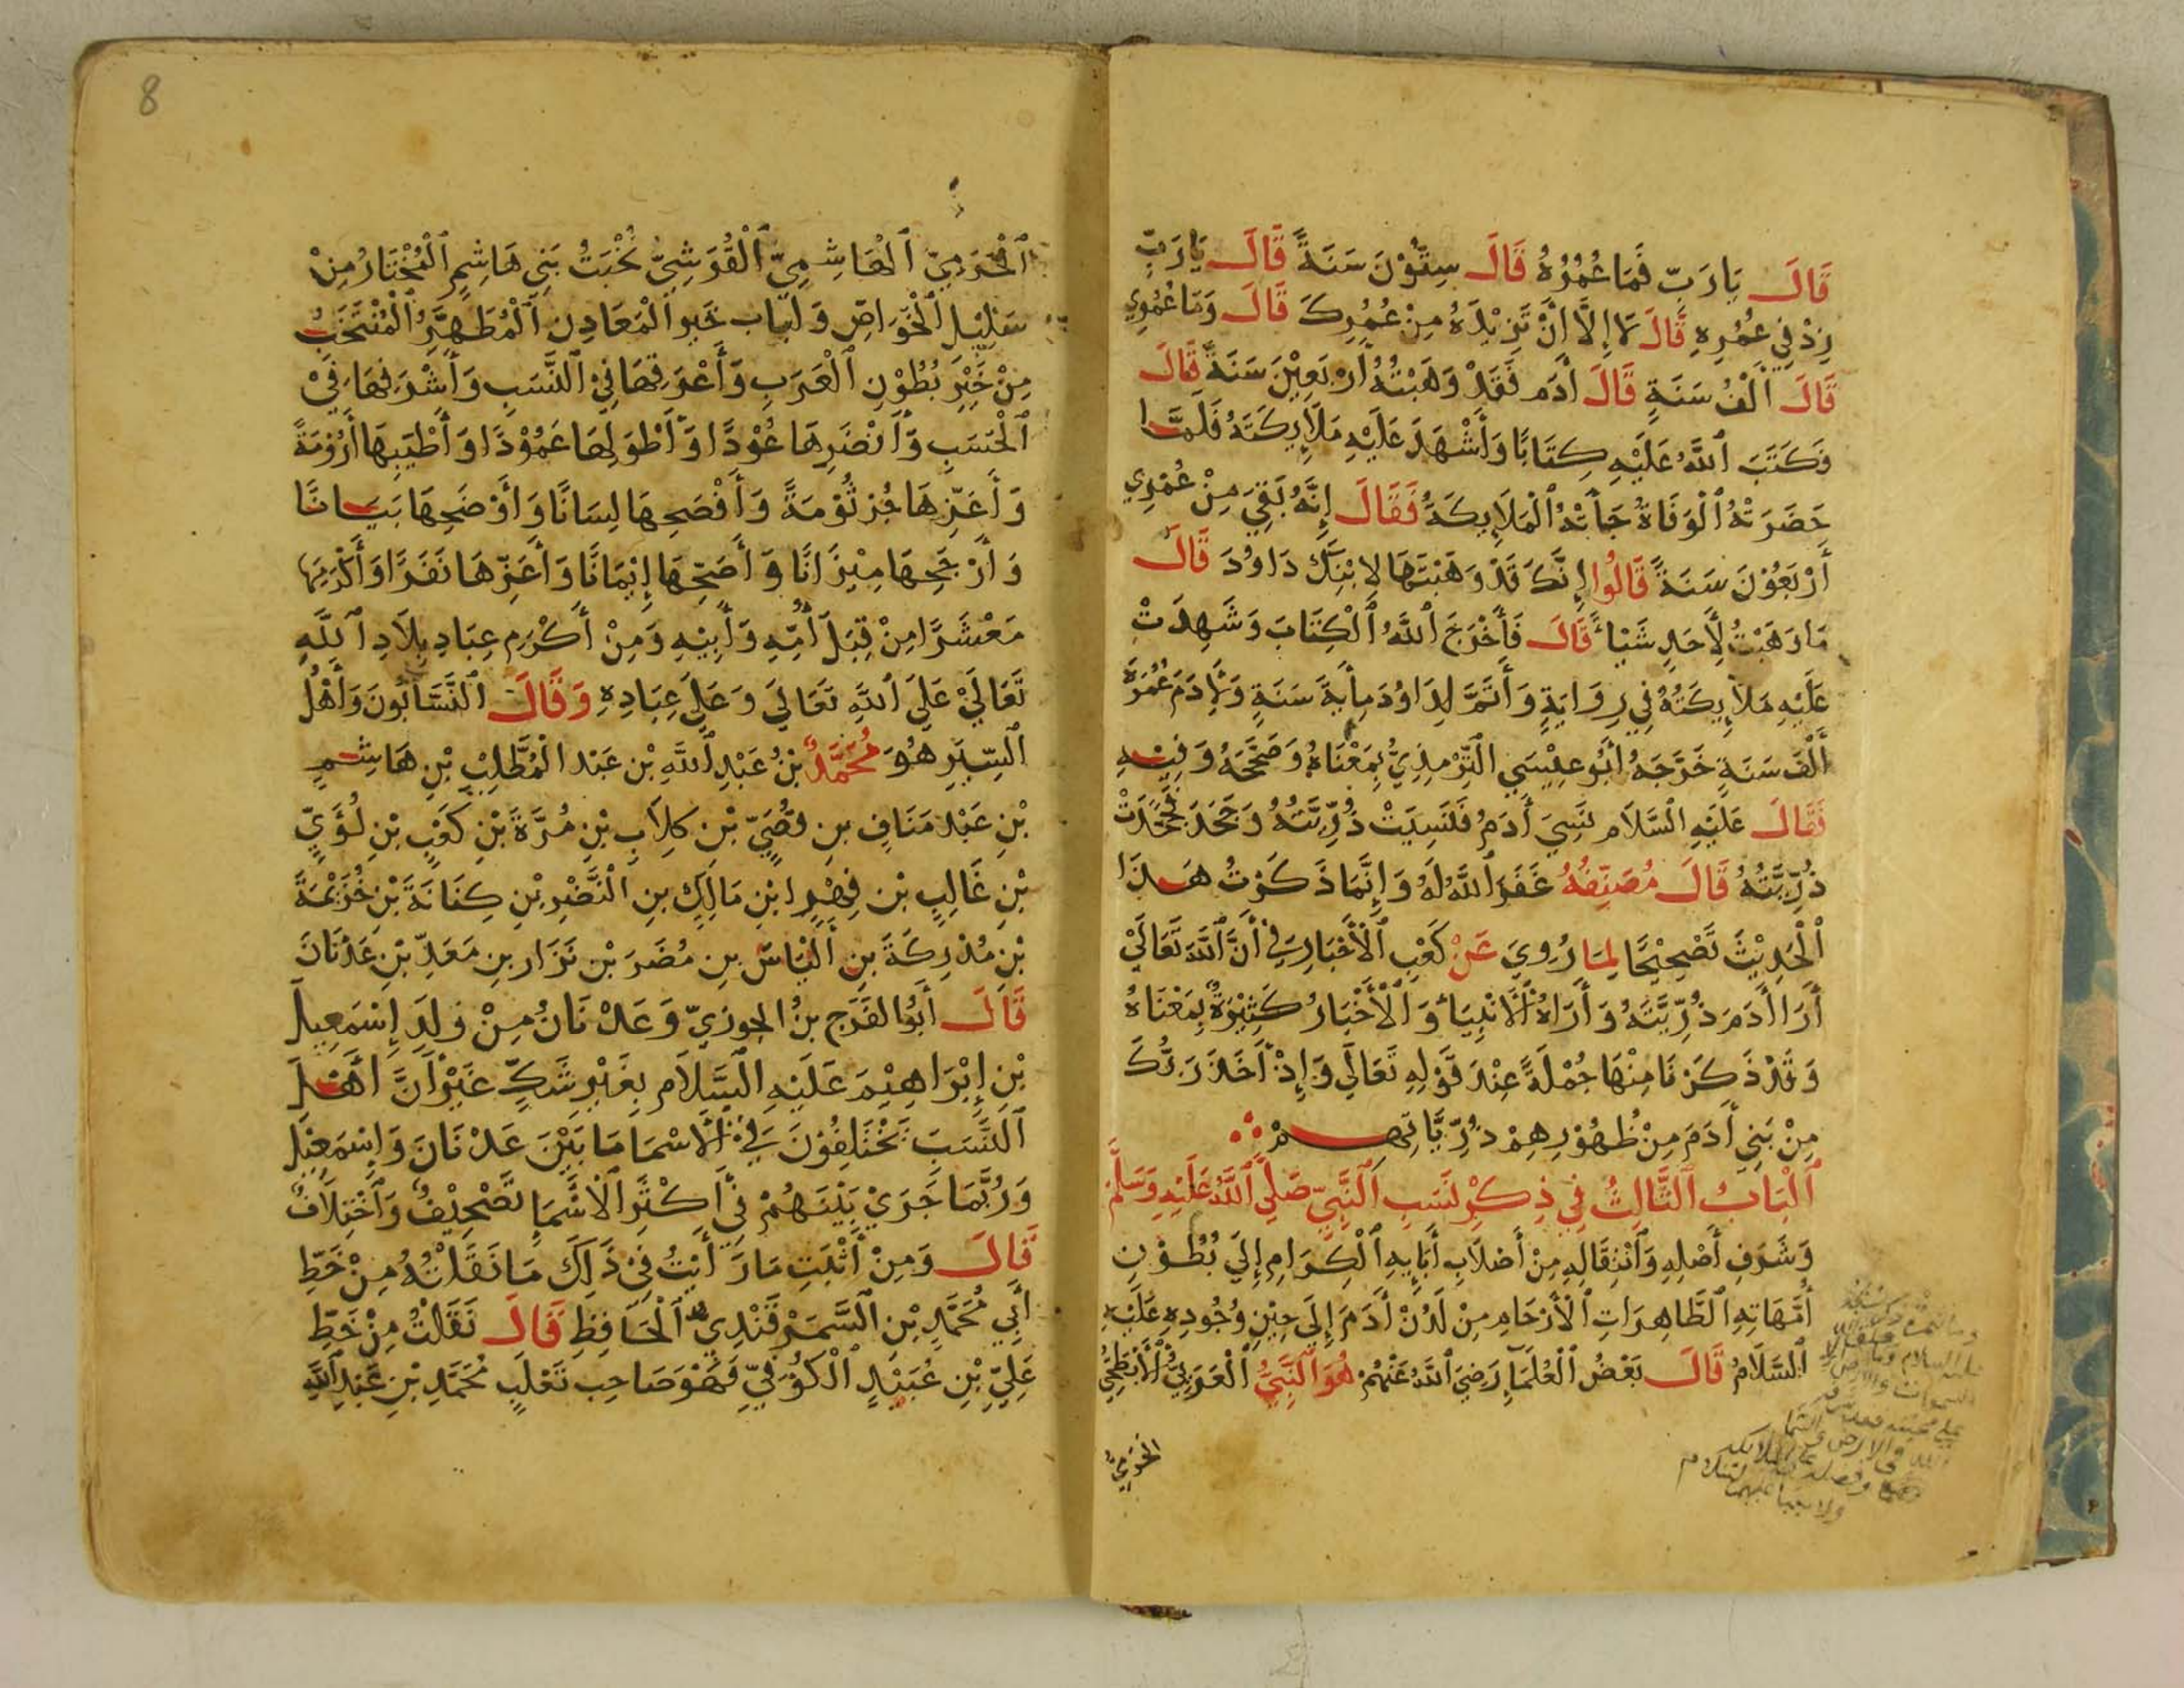 قَالَ يَا رَبِّ فَمَا عُمُرُهُ قَالَ سِتُّوْنَ سَنَةً قَالَ يَا رَبِّ
زِدْ فِي عُمُرِهِ قَالَ لَا إِلَّا أَنْ تَزِيْدَهُ مِنْ عُمُرِكَ قَالَ وَمَا عُمُرِي
قَالَ أَلْفُ سَنَةٍ قَالَ أَدَم فَقَدْ وَهَبْتُهُ أَرْبَعِيْنَ سَنَةً قَالَ
فَكَتَبَ ٱللَّهُ عَلَيْهِ كِتَابًا وَأَشْهَدَ عَلَيْهِ مَلَايِكَتَهُ فَلَمَّا
حَضَرَتْهُ ٱلْوَفَاةُ جَأَتْهُ ٱلْمَلَايِكَةُ فَقَالَ إِنَّهُ بَقِيَ مِنْ عُمْرِي
أَرْبَعُوْنَ سَنَةً قَالُوا إِنَّكَ قَدْ وَهَبْتَهَا لِابْنِكَ دَاوُدَ قَالَ
مَا وَهَبْتُ لِأَحَدٍ شَيْأً قَالَ فَأَخْرَجَ ٱللَّهُ ٱلْكِتَابَ وَشَهِدَتْ
عَلَيْهِ مَلَايِكَتُهُ فِي رِوَايَةٍ وَأَتَمَّ لِدَاوُدَ مِأيَةَ سَنَةٍ وَلِأَدَمَ عُمُرَهُ
أَلْفَ سَنَةٍ خَرَّجَهُ أَبُو عِيْسَي التِّرْمِذِيُّ بِمَعْنَاهُ وَصَحَّحَهُ وَفِيْهِ
فَقَالَ عَلَيْهِ السَّلَام نَسِيَ أَدَمُ فَنَسِيَتْ ذُرِّيَّتُهُ وَجَحَدَ فَجَحَدَتْ
ذُرِّيَّتُهُ قَالَ مُصَنِّفُهُ غَفَرَ ٱللَّهُ لَهُ وَإِنَّمَا ذَكَرْتُ هَذَا
ٱلْحَدِيْثَ تَصْحِيْحًا لِمَا رُوِيَ عَنْ كَعْبِ ٱلْأَخْبَارِ فِي أَنَّ ٱللَّهَ تَعَالَيْ
أَرَا أَدَمَ ذُرِّيَّتَهُ وَأَرَاهُ ٱلْأَنْبِيَأ وَٱلْأَخْبَارُ كَثِيْرَةٌ بِمَعْنَاهُ
وَقَدْ ذَكَرْنَا مِنْهَا جُمْلَةً عِنْدَ قَوْلِهِ تَعَالَي وَإِذْ أَخَذَ رَبُّكَ
مِنْ بَنِي أَدَمَ مِنْ ظُهُوْرِهِمْ ذُرِّيَّاتِهِمْ
ٱلْبَابُ ٱلثَّالِثُ فِي ذِكْرِ نَسَبِ ٱلنَّبِيِّ صَلَّي ٱللَّهُ عَلَيْهِ وَسَلَّمَ
وَشَرَفِ أَصْلِهِ وَٱنْتِقَالِهِ مِنْ أَصْلَابِ أَبَايِهِ ٱلْكِرَامِ إِلَي بُطُوْنِ
أُمَّهَاتِهِ ٱلطَّاهِرَاتِ ٱلْأَرْحَامِ مِنْ لَدُنْ أَدَمَ إِلَي حِيْنِ وُجُودِهِ عَلَيْهِ
ٱلسَّلَامُ قَالَ بَعْضُ ٱلْعُلَمَآ رَضِيَ ٱللَّهُ عَنْهُمْ هُوَ ٱلنَّبِيُّ ٱلْعَرَبِيُّ ٱلْأَبْطَحِيُّ
الحَرَمِيُّ
8
ٱلْحَرَمِيّ ٱلْهَاشِمِيّ ٱلْقُرَشِيّ نُخْبَتُ بَنِي هَاشِمٍ ٱلْمُخْتَارُ مِنْ
سَلِيْلِ ٱلْخَوَاصِّ وَلُبَابِ خَيْرِ ٱلْمَعَادِن ٱلْمُطَهَّرُ ٱلْمُنْتَخَبُ
مِنْ خَيْرِ بُطُوْنِ ٱلْعَرَبِ وَأَعْرَقِهَا فِيْ ٱلنَّسَبِ وَأَشْرَفِهَا فِيْ
ٱلْحَسَبِ وَأَنْضَرِهَا عُوْدًا وَأَطْوَلِهَا عَمُوْدًا وَأَطْيَبِهَا أَرُوْمَةً
وَأَعَزِّهَا جُرْثُوْمَةً وَأَفْصَحِهَا لِسَانًا وَأَوْضَحِهَا بَيَانًا
وَأَرْجَحِهَا مِيْزَانًا وَأَصَحِّهَا إِيْمَانًا وَأَعَزِّهَا نَفَرًا وَأَكْرَمِهَا
مَعْشَرًا مِنْ قِبَلِ أُمِّهِ وَأَبِيْهِ وَمِنْ أَكْرَمِ عِبَادِ بِلَادِ ٱللَّهِ
تَعَالَيْ عَلَيَ ٱللَّهِ تَعَالَيَ وَعَلَيَ عِبَادِهِ وَقَالَ النَّسَّابُونَ وَأَهْلُ
السِّيَرِ هُوَ مُحَمَّدُ بْنُ عَبْدِ ٱللَّهِ بْن عَبْد الْمُطَّلِبِ بْنِ هَاشِمِ
بْنِ عَبْد مَنَافِ بنِ قُصَيّ بْن كِلَابِ بْنِ مُرَّةَ بْنِ كَعْبِ بْنِ لُؤَيِّ
بْنِ غَالِبِ بْن فِهْرِ ابْنِ مَالِكِ بنِ النَّضْرِ بْنِ كِنَانَةَ بْنِ خُزَيْمَةَ
بْنِ مُدْرِكَةَ بنِ اَلْيَاسَ بنِ مُضَرَ بْن نَزَار بنِ مَعَدِّ بْنِ عَدْنَانَ
قَالَ أَبُو الفَرَجِ بنُ الجوزيّ وَعَدْنَانُ مِنْ وَلَدِ إِسْمَعِيلَ
بْنِ إِبْرَاهِيْمَ عَلَيْهِ السَّلَام بِغَيْرِ شَكٍّ غَيْرَ أَنَّ أَهْلَ
ٱلنَّسَبِ يَخْتَلِفُوْنَ فِي ٱلْأَسْمَا مَا بَيْنَ عَدْنَانَ وَإِسْمَعِيْلَ
وَرُبَّمَا جَرَيْ بَيْنَهُمْ فِي أَكْثَرِ الْأَسْمَا تَصْحِيْفٌ وَٱخْتِلَافٌ
قَالَ وَمِنْ أَثْبَتِ مَا رَأَيْتُ فِيْ ذَلِكَ مَا نَقَلْتُهُ مِنْ خَطِّ
أَبِي مُحَمَّدِ بْنِ السَّمَرْقَنْدِي ٱلْحَافِظِ قَالَ نَقَلْتُ مِنْ خَطِّ
عَلِيِّ بْنِ عُبَيْدٍ ٱلْكُوْفِيِّ وَهْوَ صَاحِب ثَعْلَبٍ مُحَمَّدِ بْنِ عَبْدِ ٱللَّهِ